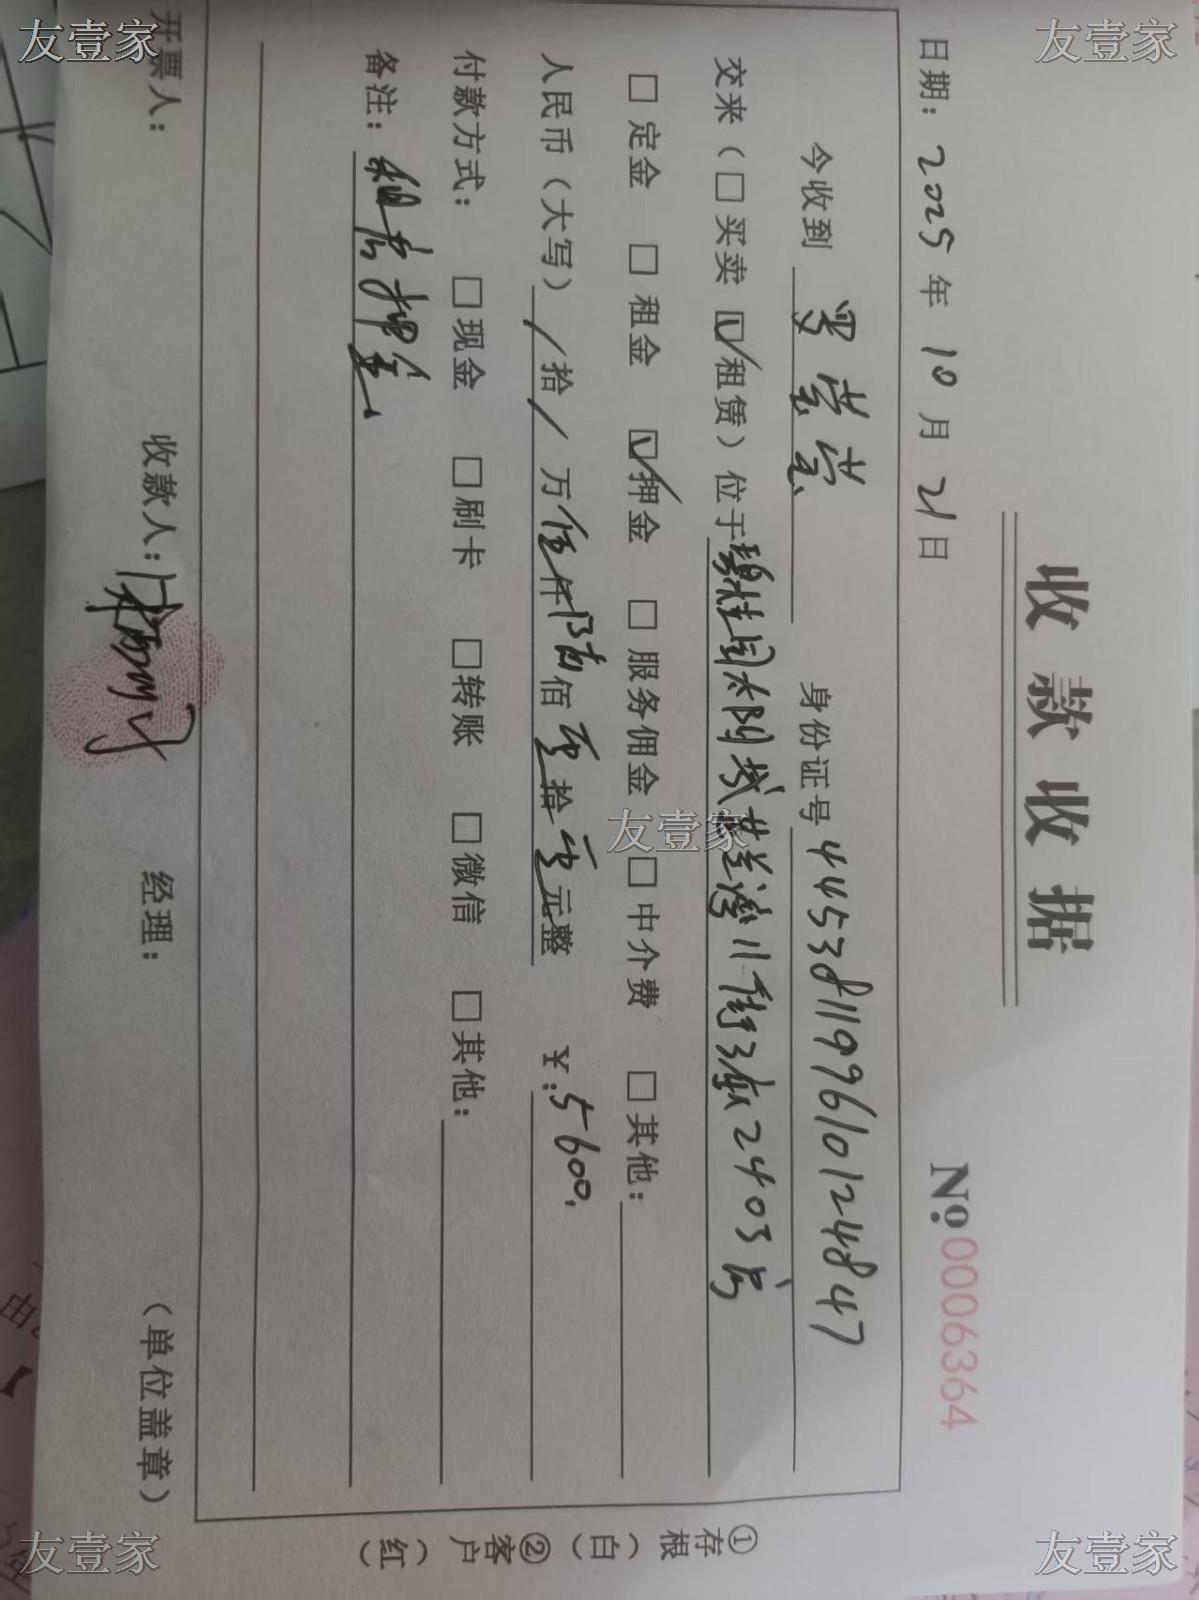 收款收据
No.0006364
日期：2025年10月21日
今收到 罗莹莹 身份证号 445381199610124847
交来（□买卖 ☑租赁）位于碧桂园太阳城芷兰湾川街3栋2403房
□ 定金 □ 租金 ☑押金 □ 服务佣金 □ 中介费 □ 其他：
人民币（大写）/拾/万伍仟陆佰零拾零元整 ￥:5600.
付款方式： □现金 □刷卡 □转账 □微信 □其他：
备注：租房押金
开票人： 收款人： 经理： （单位盖章）
①存根（白）②客户（红）
友壹家
友壹家
友壹家
友壹家
友壹家